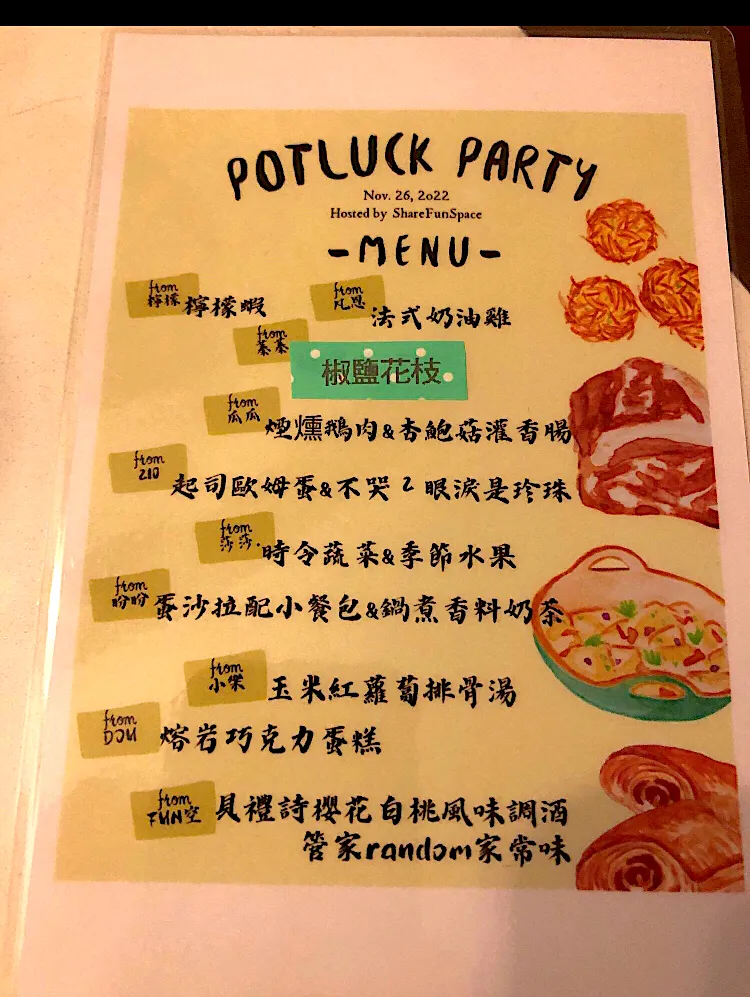 POTLUCK PARTY
Nov. 26, 2022
Hosted by ShareFunSpace
-MENU-
from 檸檬 檸檬蝦
from 凡恩 法式奶油雞
from 蓁蓁 椒鹽花枝
from 瓜瓜 煙燻鵝肉&杏鮑菇灌香腸
from 210 起司歐姆蛋&不哭2眼淚是珍珠
from 莎莎 時令蔬菜&季節水果
from 盼盼 蛋沙拉配小餐包&鍋煮香料奶茶
from 小樂 玉米紅蘿蔔排骨湯
from DOU 熔岩巧克力蛋糕
from FUN空 貝禮詩櫻花白桃風味調酒
管家random家常味